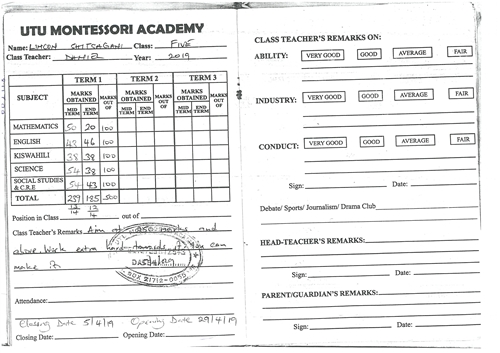 UTU MONTESSORI ACADEMY
Name: LINCON SHITSAGANI Class: FIVE
Class Teacher: DANIEL Year: 2019
SUBJECT TERM 1 TERM 2 TERM 3
MARKS OBTAINED MARKS OUT OF MARKS OBTAINED MARKS OUT OF MARKS OBTAINED MARKS OUT OF
MID TERM END TERM MID TERM END TERM MID TERM END TERM
MATHEMATICS 50 20 100
ENGLISH 43 46 100
KISWAHILI 38 38 100
SCIENCE 54 38 100
SOCIAL STUDIES & C.R.E 54 43 100
TOTAL 239 185 500
Position in Class out of
Class Teacher's Remarks Aim at 250 marks and
above. Work extra hard towards it. You can
make it
Attendance:
Closing Date 5/4/19 Opening Date 29/4/19
Closing Date: Opening Date:
CLASS TEACHER'S REMARKS ON:
ABILITY: VERY GOOD GOOD AVERAGE FAIR
INDUSTRY: VERY GOOD GOOD AVERAGE FAIR
CONDUCT: VERY GOOD GOOD AVERAGE FAIR
Sign: Date:
Debate/ Sports/ Journalism/ Drama Club
HEAD-TEACHER'S REMARKS:
Sign: Date:
PARENT/GUARDIAN'S REMARKS:
Sign: Date: